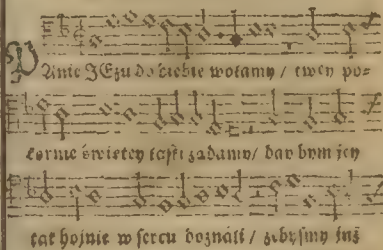 PAnie JEzu do ciebie wołamy / twey po=
kornie świętey łáski żądamy / day bym jey
ták hojnie w sercu doználi / żebysmy już